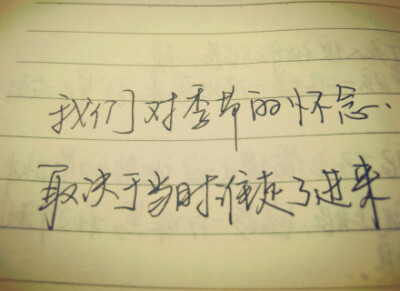 我们对季节的怀念.
取决于当时谁走了进来